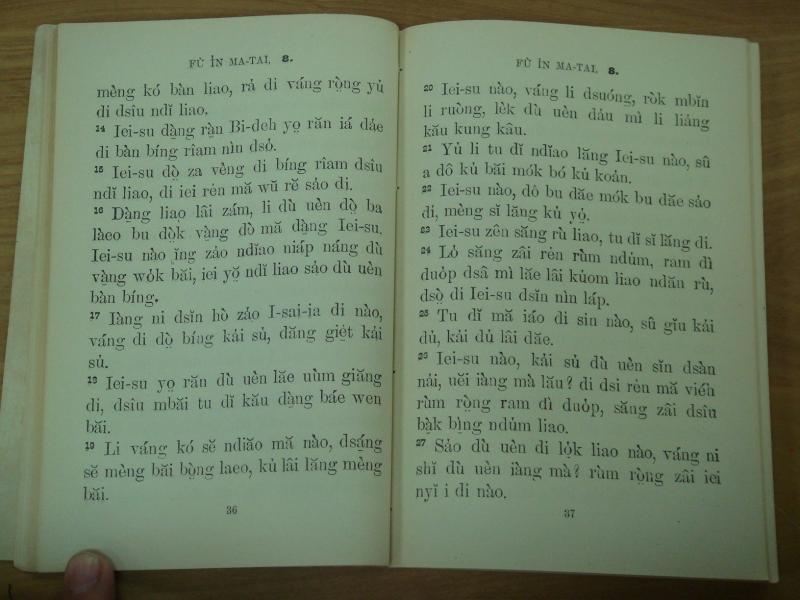 FÙ ÍN MA-TAI, 8.
mèng kó bàn liao, rả di váng rò̤ng yủ
di dsîu ndĭ liao.
14 Iei-su dà̤ng rà̤n Bi-deh yo̤ răn iá dáe
di bàn bíng rîam nìn dsỏ.
15 Iei-su dò̤ za vẻng di bíng rîam dsîu
ndĭ liao, di iei rẻn mă wŭ rĕ sảo di.
16 Dà̤ng liao lâi zám, li dù uèn dò̤ ba
làeo bu dò̤k và̤ng dò mă dà̤ng Iei-su.
Iei-su nào ỉng zảo ndiăo niáp náng dù
và̤ng wỏk băi, iei yŏ̤ ndĭ liao sảo dù uèn
bàn bíng.
17 Iàng ni dsĭn hò zảo I-sai-ja di nào,
váng di dò̤ bíng kải sủ, dăng giẻt kải
sủ.
18 Iei-su yo̤ răn dù uèn lăe uùm giăng
di, dsîu mbăi tu dĭ kău dà̤ng báe wen
băi.
19 Li váng kó sĕ ndiăo mă nào, dsá̤ng
sĕ mèng băi bò̤ng laeo, kủ lâi lăng mèng
băi.
36
FÙ ÍN MA-TAI, 8.
20 Iei-su nào, váng li dsuóng, ròk mbĭn
li ruòng, lèk dù uèn dảu mì li liảng
kău kung kâu.
21 Yủ li tu dĭ ndĭao lăng Iei-su nào, sû
a dô kủ băi mók bó kủ koản.
22 Iei-su nào, dô bu dăe mók bu dăe sảo
di, mèng sĭ lăng kủ yỏ̤.
23 Iei-su zên săng rù liao, tu dĭ sĭ lăng di.
24 Lỏ săng zâi rẻn rùm ndủm, ram dì
duỏp dsâ mì lăe lâi kủom liao ndăn rù,
dsò̤ di Iei-su dsĭn nìn láp.
25 Tu dĭ mă iáo di sin nào, sû gĭu kải
dủ, kải dủ lâi dăe.
26 Iei-su nào, kải sủ dù uèn sĭn dsàn
nải, uĕi iàng mà lău? di dsi rẻn mă vieh
rùm rò̤ng ram dì duỏp, săng zâi dsîu
bà̤k bì̤ng ndủm liao.
27 Sảo dù uèn di lỏ̤k liao nào, váng ni
shĭ dù uèn iàng mà? rùm rò̤ng zâi iei
nyĭ i di nào.
37